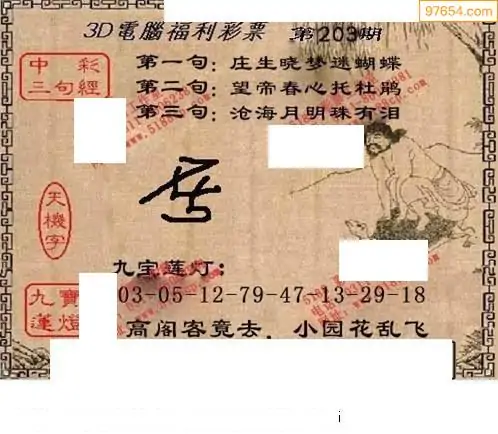 97654.com
3D電腦福利彩票 第203期
中彩
三句經
第一句：庄生晓梦迷蝴蝶
第二句：望帝春心托杜鹃
第三句：沧海月明珠有泪
天機字
九宝莲灯：
九寶
蓮燈
03-05-12-79-47-13-29-18
高阁客竟去．小园花乱飞
i